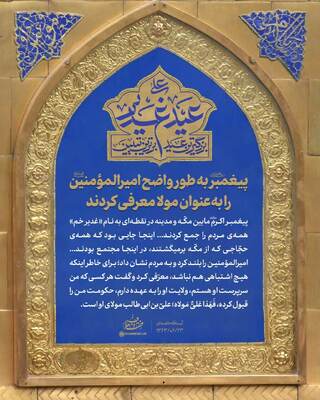 عید غدیر
پیغمبر به طور واضح امیرالمؤمنین
را به عنوان مولا معرفی کردند
پیغمبر اکرم مابین مکّه و مدینه در نقطه‌ای به نام «غدیر خم»
همه‌ی مردم را جمع کردند... اینجا جایی بود که همه‌ی
حجّاجی که از مکّه برمیگشتند، در اینجا مجتمع بودند...
امیرالمؤمنین را بلند کرد و به مردم نشان داد؛ برای خاطر اینکه
هیچ اشتباهی هم نباشد، معرّفی کرد و گفت هر کسی که من
سرپرست او هستم، ولایت او را به عهده دارم، حکومت من را
قبول کرده، فَهٰذا عَلِیٌّ مَولاه؛ علیّ‌بن‌ابی‌طالب مولای او است.